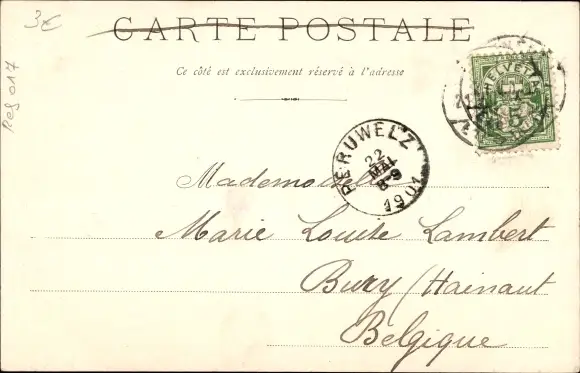 3€
CARTE POSTALE
Ce côté est exclusivement réservé à l'adresse
HELVETIA
PERUWELZ
22
MAI
8-9
1901
Mademoiselle
Marie Louise Lambert
Bury (Hainaut
Belgique